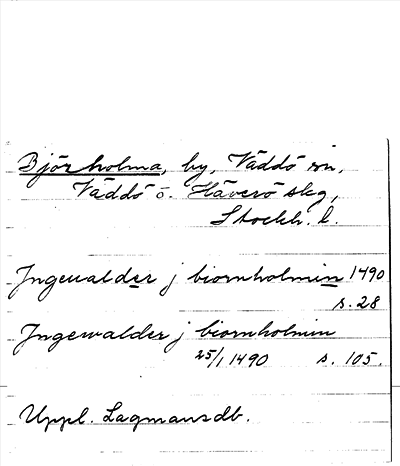 Björholma, by, Väddö sn,
Väddö o. Häverö skg,
Stockh. l.
Ingewalder j biornholmin 1490
s. 28
Ingewalder j biornholmin
25/1 1490 s. 105.
Uppl. Lagmansdb.